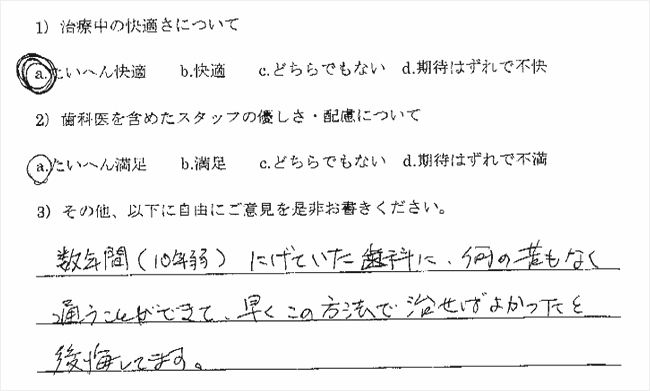 1) 治療中の快適さについて
a.たいへん快適 b.快適 c.どちらでもない d.期待はずれで不快
2) 歯科医を含めたスタッフの優しさ・配慮について
a.たいへん満足 b.満足 c.どちらでもない d.期待はずれで不満
3) その他、以下に自由にご意見を是非お書きください。
数年間(10年弱) にげていた歯科に、何の苦もなく
通うことができて、早くこの方法で治せばよかったと
後悔してます。